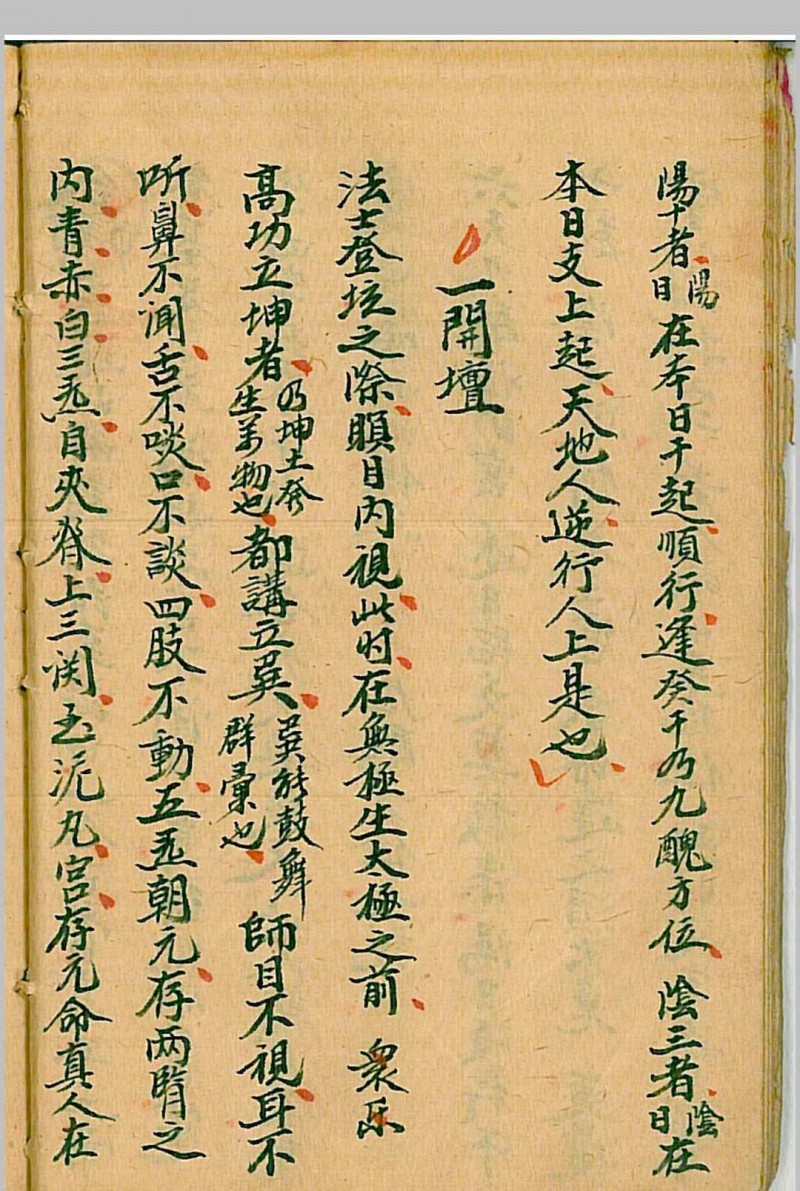 陽十者陽日在本日干起順行逢癸干乃九醜方位陰三者陰日在
本日支上起天地人逆行人上是也
一開壇
法士登坛之際瞑目内視此时在無極生太極之前眾乐
高功立坤者乃坤土發生萬物也都講立巽巽能鼓舞群彙也師目不視耳不
听鼻不闻舌不啖口不談四肢不動五炁朝元存两腎之
内青赤白三炁自夾脊上三関至泥丸宫存元命真人在